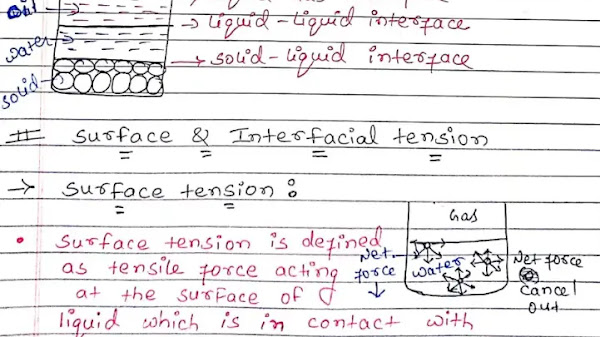 oil
→ liquid-liquid interface
water
→ solid-liquid interface
solid
# Surface & Interfacial tension
→ Surface tension :
• Surface tension is defined
as tensile force acting
at the surface of
liquid which is in contact with
Gas
Net force
↓
water
Net force
cancel
out